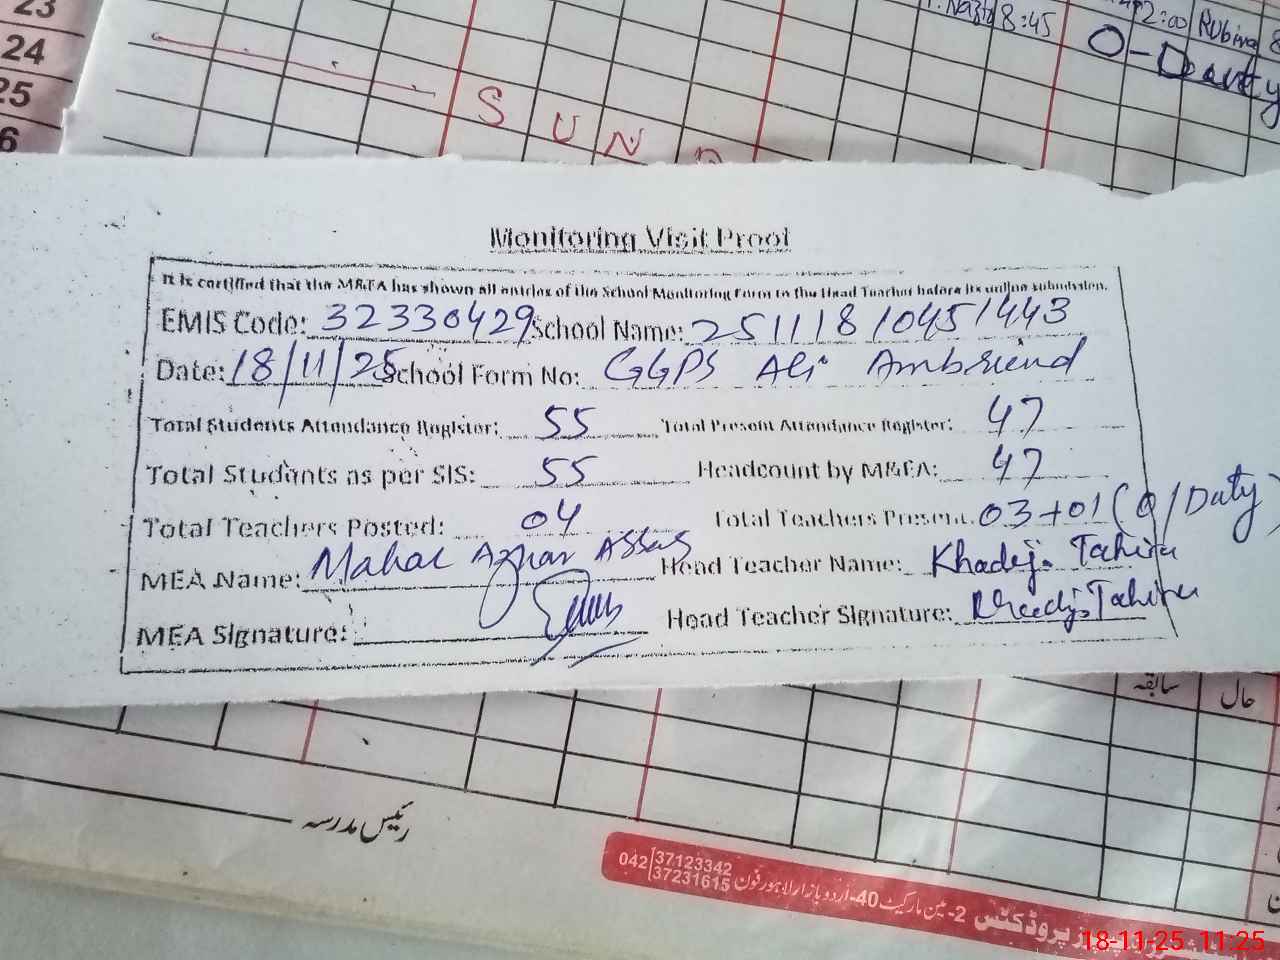 23
24
25
6
8:45
2:00 Rubina 8
O-Duty
S U N D
Monitoring Visit Proof
It is certified that the M&EA has shown all entries of the School Monitoring Form to the Head Teacher before its online submission.
EMIS Code: 32330429 School Name: 251118 10451443
Date: 18/11/25 School Form No: GGPS Ali Ambriend
Total Students Attendance Register: 55 Total Present Attendance Register: 47
Total Students as per SIS: 55 Headcount by M&EA: 47
Total Teachers Posted: 04 Total Teachers Present: 03+01 (O/Duty)
MEA Name: Mahar Azhar Abbas Head Teacher Name: Khadija Tahira
MEA Signature: Head Teacher Signature: Khadija Tahira
سابقہ حال
رئیس مدرسہ
042 37123342
37231615
2- مین مارکیٹ 40-اردو بازار لاہور فون
پروڈکٹس
18-11-25 11:25